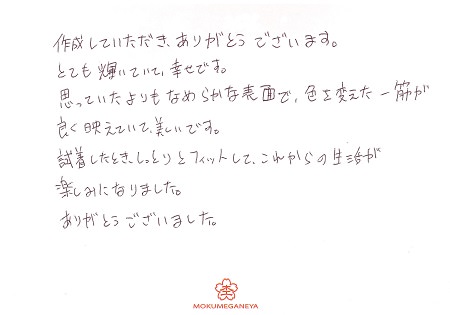 作成していただき、ありがとうございます。
とても輝いていて、幸せです。
思っていたよりもなめらかな表面で、色を変えた一筋が
良く映えていて、美しいです。
試着したとき、しっとりとフィットして、これからの生活が
楽しみになりました。
ありがとうございました。
MOKUMEGANEYA